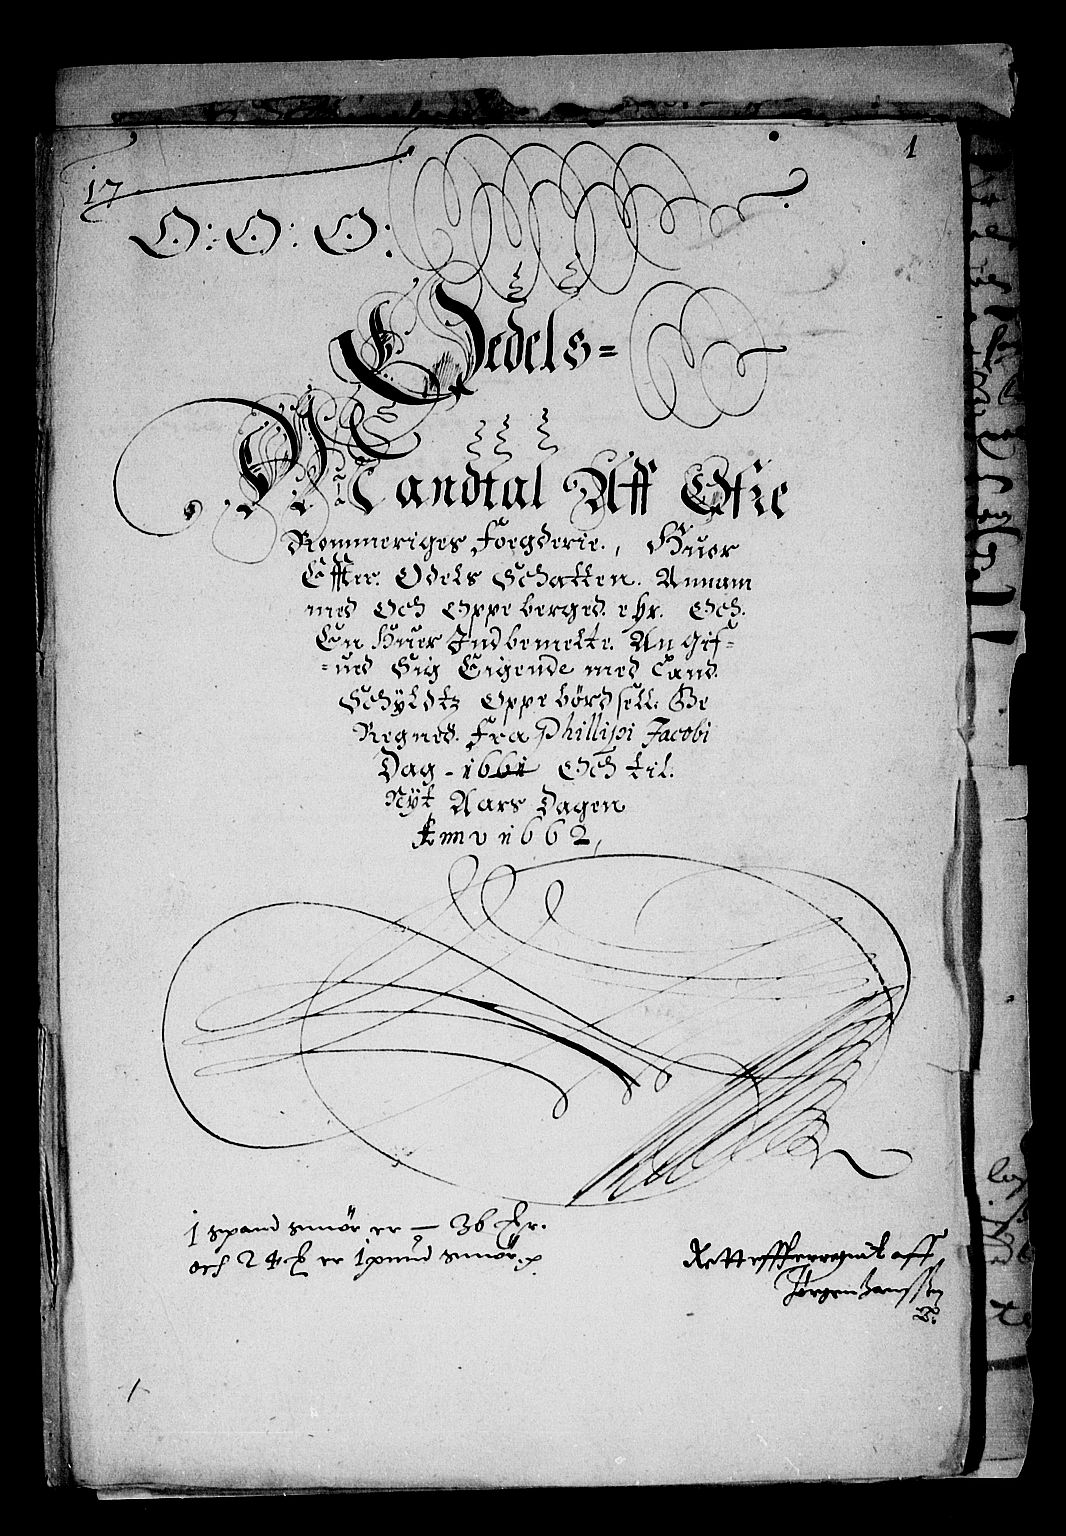 17
1
O: O: O:
Jedels=
Mandtal Aff Øfre
Rommeriges Foegderie., Huor
Effter. Odels Schatten. Annam
med Och Oppeberged. ehr. Och.
En Huer Indbemelte. Angif=
=ued Sig Eigende med Land
Schÿldtz Oppebørdsell: Be
Regned. Fra Phillipi Jacobi
Dag - 1661 Och til.
Nÿt Aars Dagen
Anno 1662,
1 spand smør er — 36 ħ.
och 24 ħ er 1 pund smør.
Rett effterregnit aff
Jørgen Hanssen
1